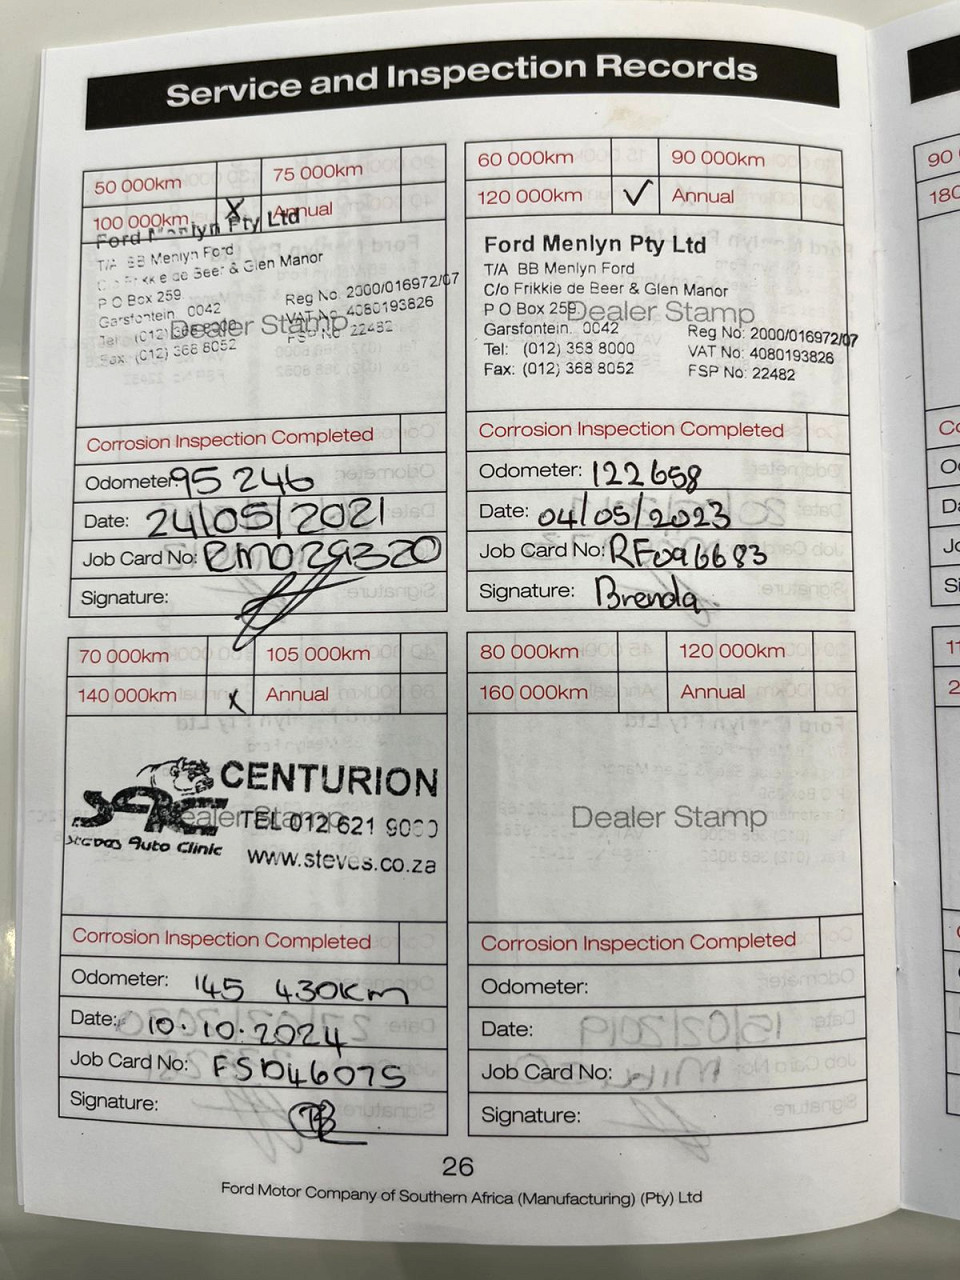 Service and Inspection Records
50 000km 75 000km
100 000km X Annual
Ford Menlyn Pty Ltd
T/A BB Menlyn Ford
C/o Frikkie de Beer & Glen Manor
P O Box 259
Garsfontein 0042
Reg No: 2000/016972/07
VAT No: 4080193826
FSP No: 22482
Tel: (012) 368 8000
Fax: (012) 368 8052
Dealer Stamp
Corrosion Inspection Completed
Odometer: 95 246
Date: 24/05/2021
Job Card No:
Signature:
60 000km 90 000km
120 000km ✓ Annual
Ford Menlyn Pty Ltd
T/A BB Menlyn Ford
C/o Frikkie de Beer & Glen Manor
P O Box 259
Dealer Stamp
Garsfontein 0042
Reg No: 2000/016972/07
Tel: (012) 368 8000
VAT No: 4080193826
Fax: (012) 368 8052
FSP No: 22482
Corrosion Inspection Completed
Odometer: 122 658
Date: 04/05/2023
Job Card No: RF096683
Signature: Brenda
70 000km 105 000km
140 000km x Annual
CENTURION
SAC
Dealer Stamp
TEL 012 621
Steves Auto Clinic
www.steves.co.za
Corrosion Inspection Completed
Odometer: 145 430km
Date: 10.10.2024
Job Card No: FSD46075
Signature:
80 000km 120 000km
160 000km Annual
Dealer Stamp
Corrosion Inspection Completed
Odometer:
Date:
Job Card No:
Signature:
26
Ford Motor Company of Southern Africa (Manufacturing) (Pty) Ltd